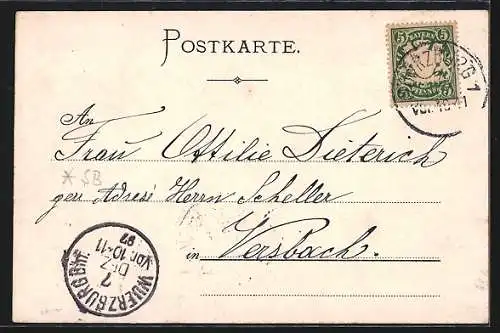 POSTKARTE.
5 BAYERN 5
PFENNIG
WÜRZBURG 1
Vor. 10-11
An
Frau Ottilie Dieterich
* SB
per Adresse Herrn Scheller
in Versbach.
WUERZBURG Bhf.
7
DEZ
Vor. 10-11
97